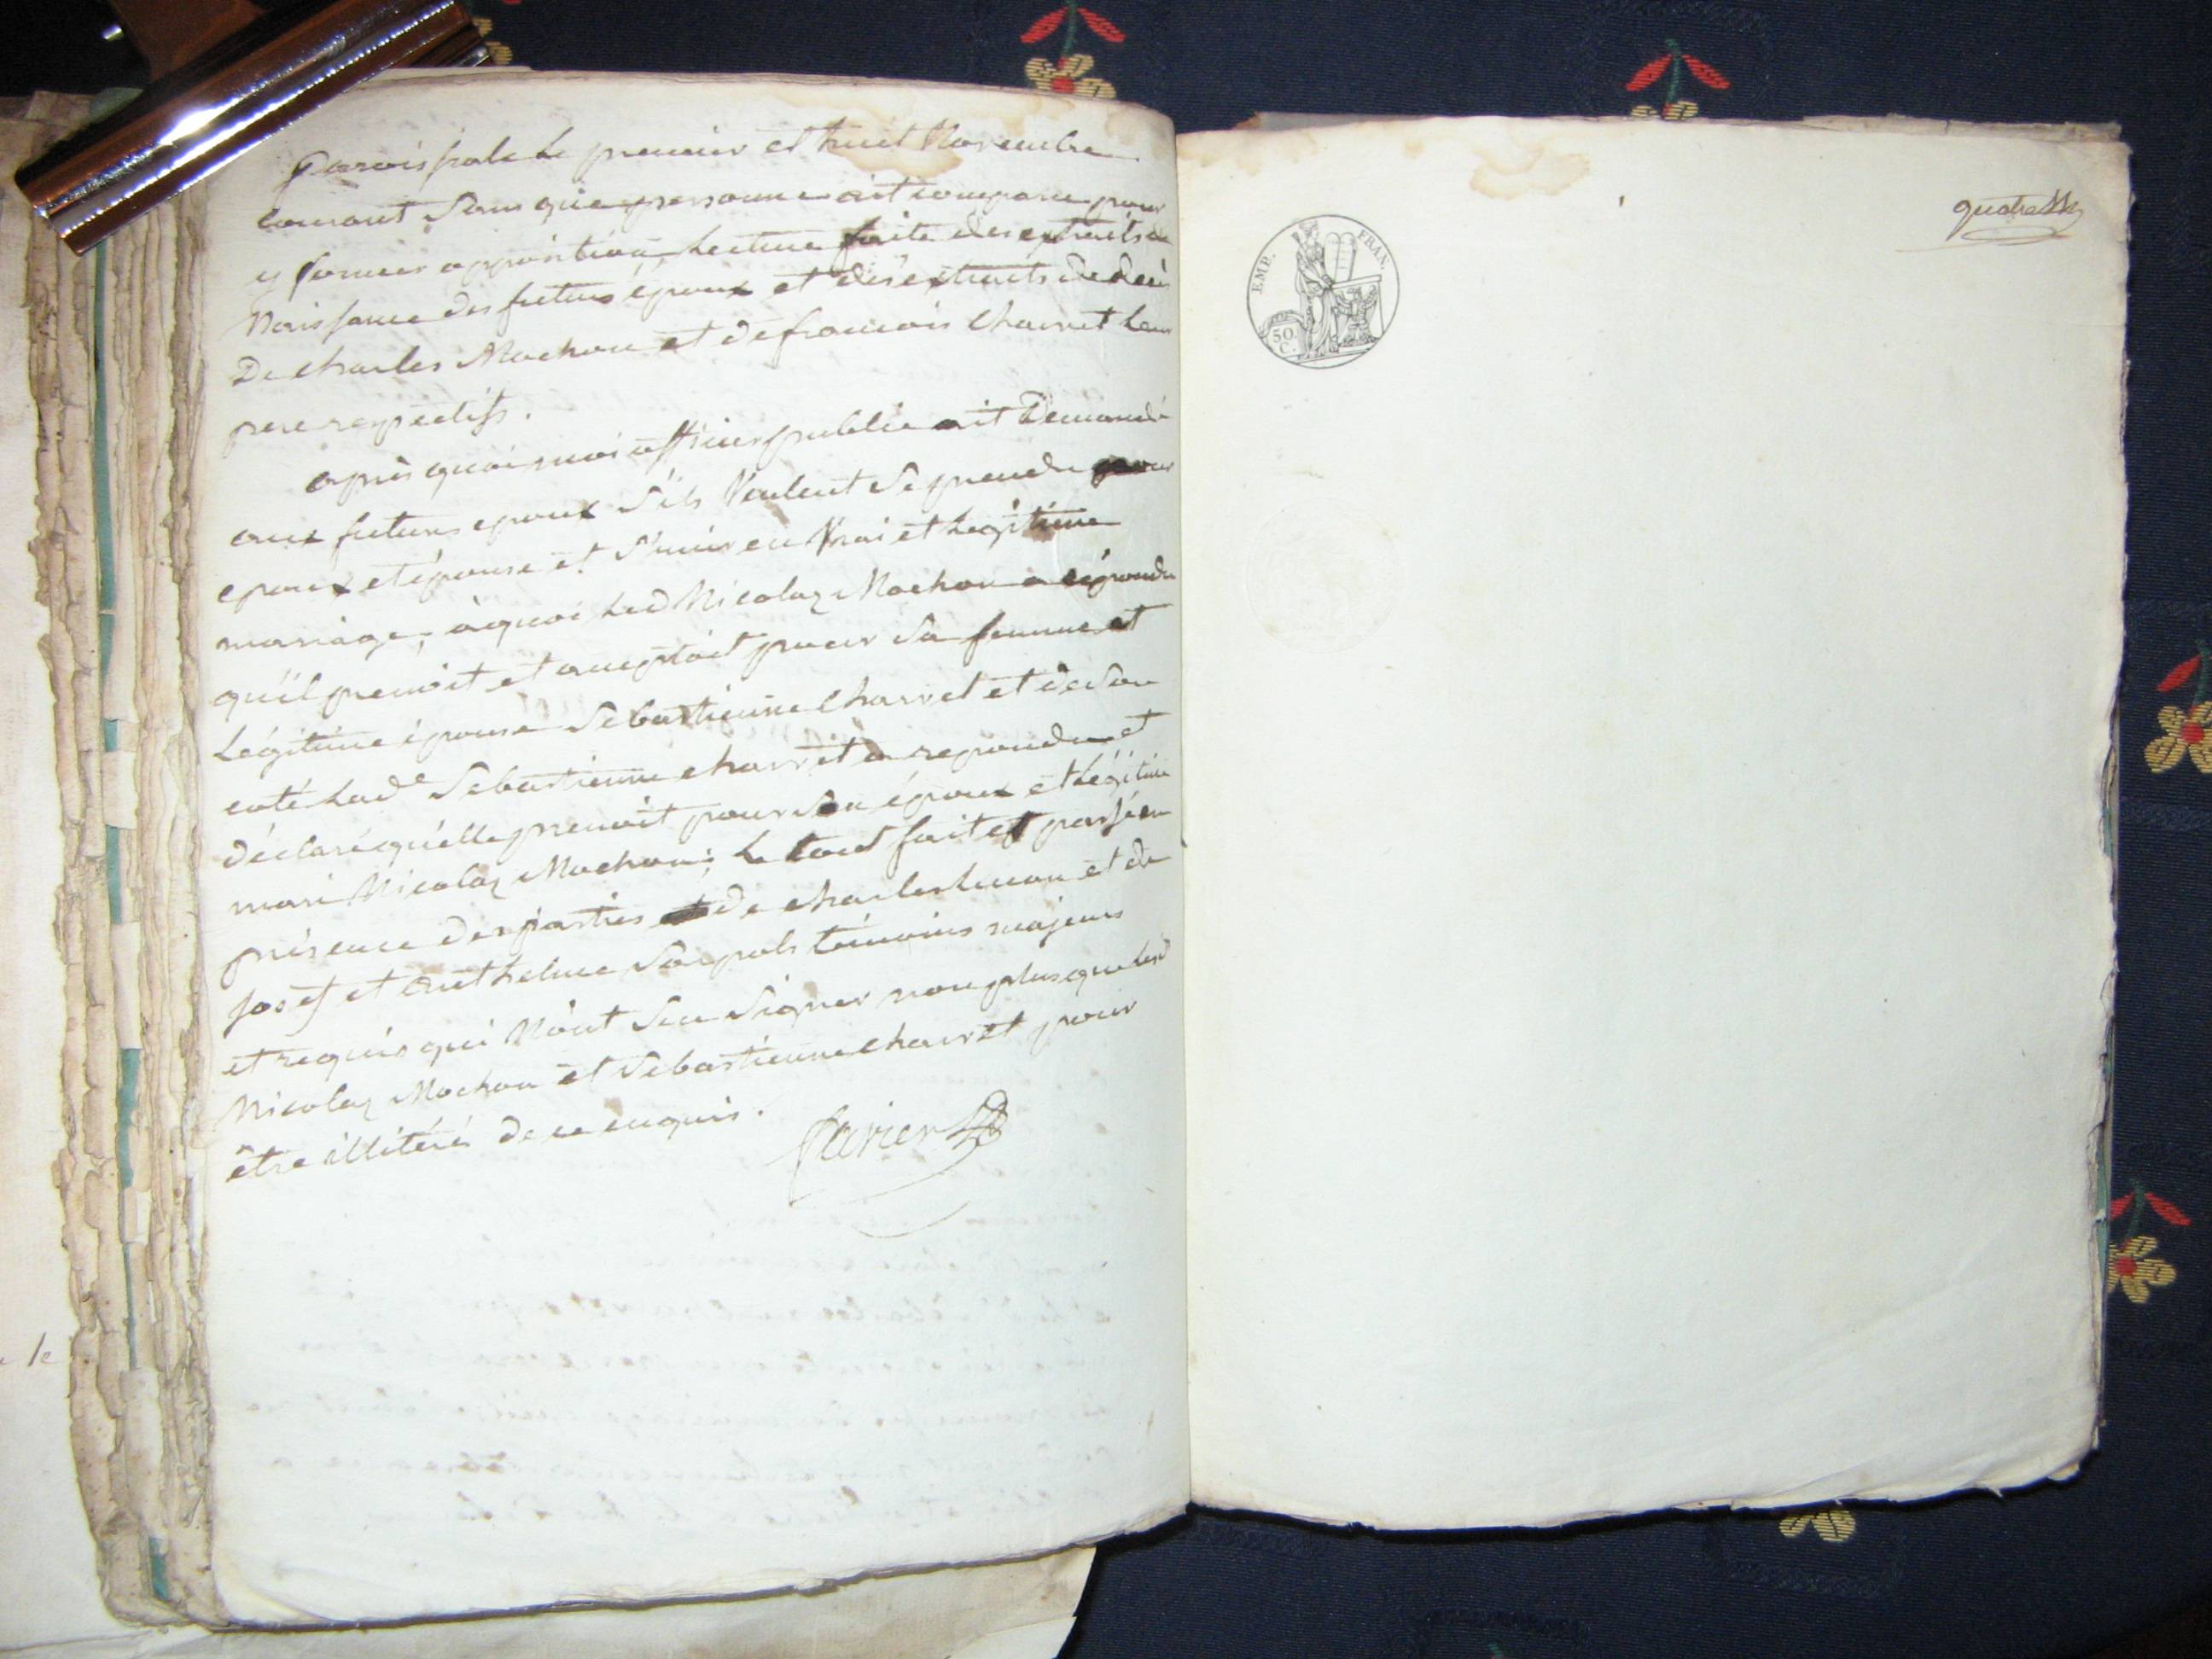 paroissiale le premier et huit Novembre
courant sans que personne ait comparu pour
y former opposition, Lecture faite des extraits de
Naissance des futurs époux et des extraits de décès
De charles Mochon et de francois Charvet leur
pere respectifs.
après quoi moi officier public ait demandé
aux futurs epoux s'ils Veulent se prendre pour
epoux et épouse et s'unir en Vrai et Legitime
mariage; à quoi led Nicolaz Mochon a répondu
qu'il prenoit et acceptoit pour sa femme et
Légitime épouse Sebastienne Charvet et de son
coté lade Sebastienne charvet a repondu et
déclaré qu'elle prenoit pour son époux et Légitime
mari Nicolaz Mochon; le tout fait et passé en
présence des parties et de charles et de
josef et anthelme témoins majeurs
et requis qui N'ont seu signer non plus que lesd
Nicolaz Mochon et Sebastienne charvet pour
être illitérés de ce enquis.
favier
EMP. FRAN.
50
C.
quatre
le